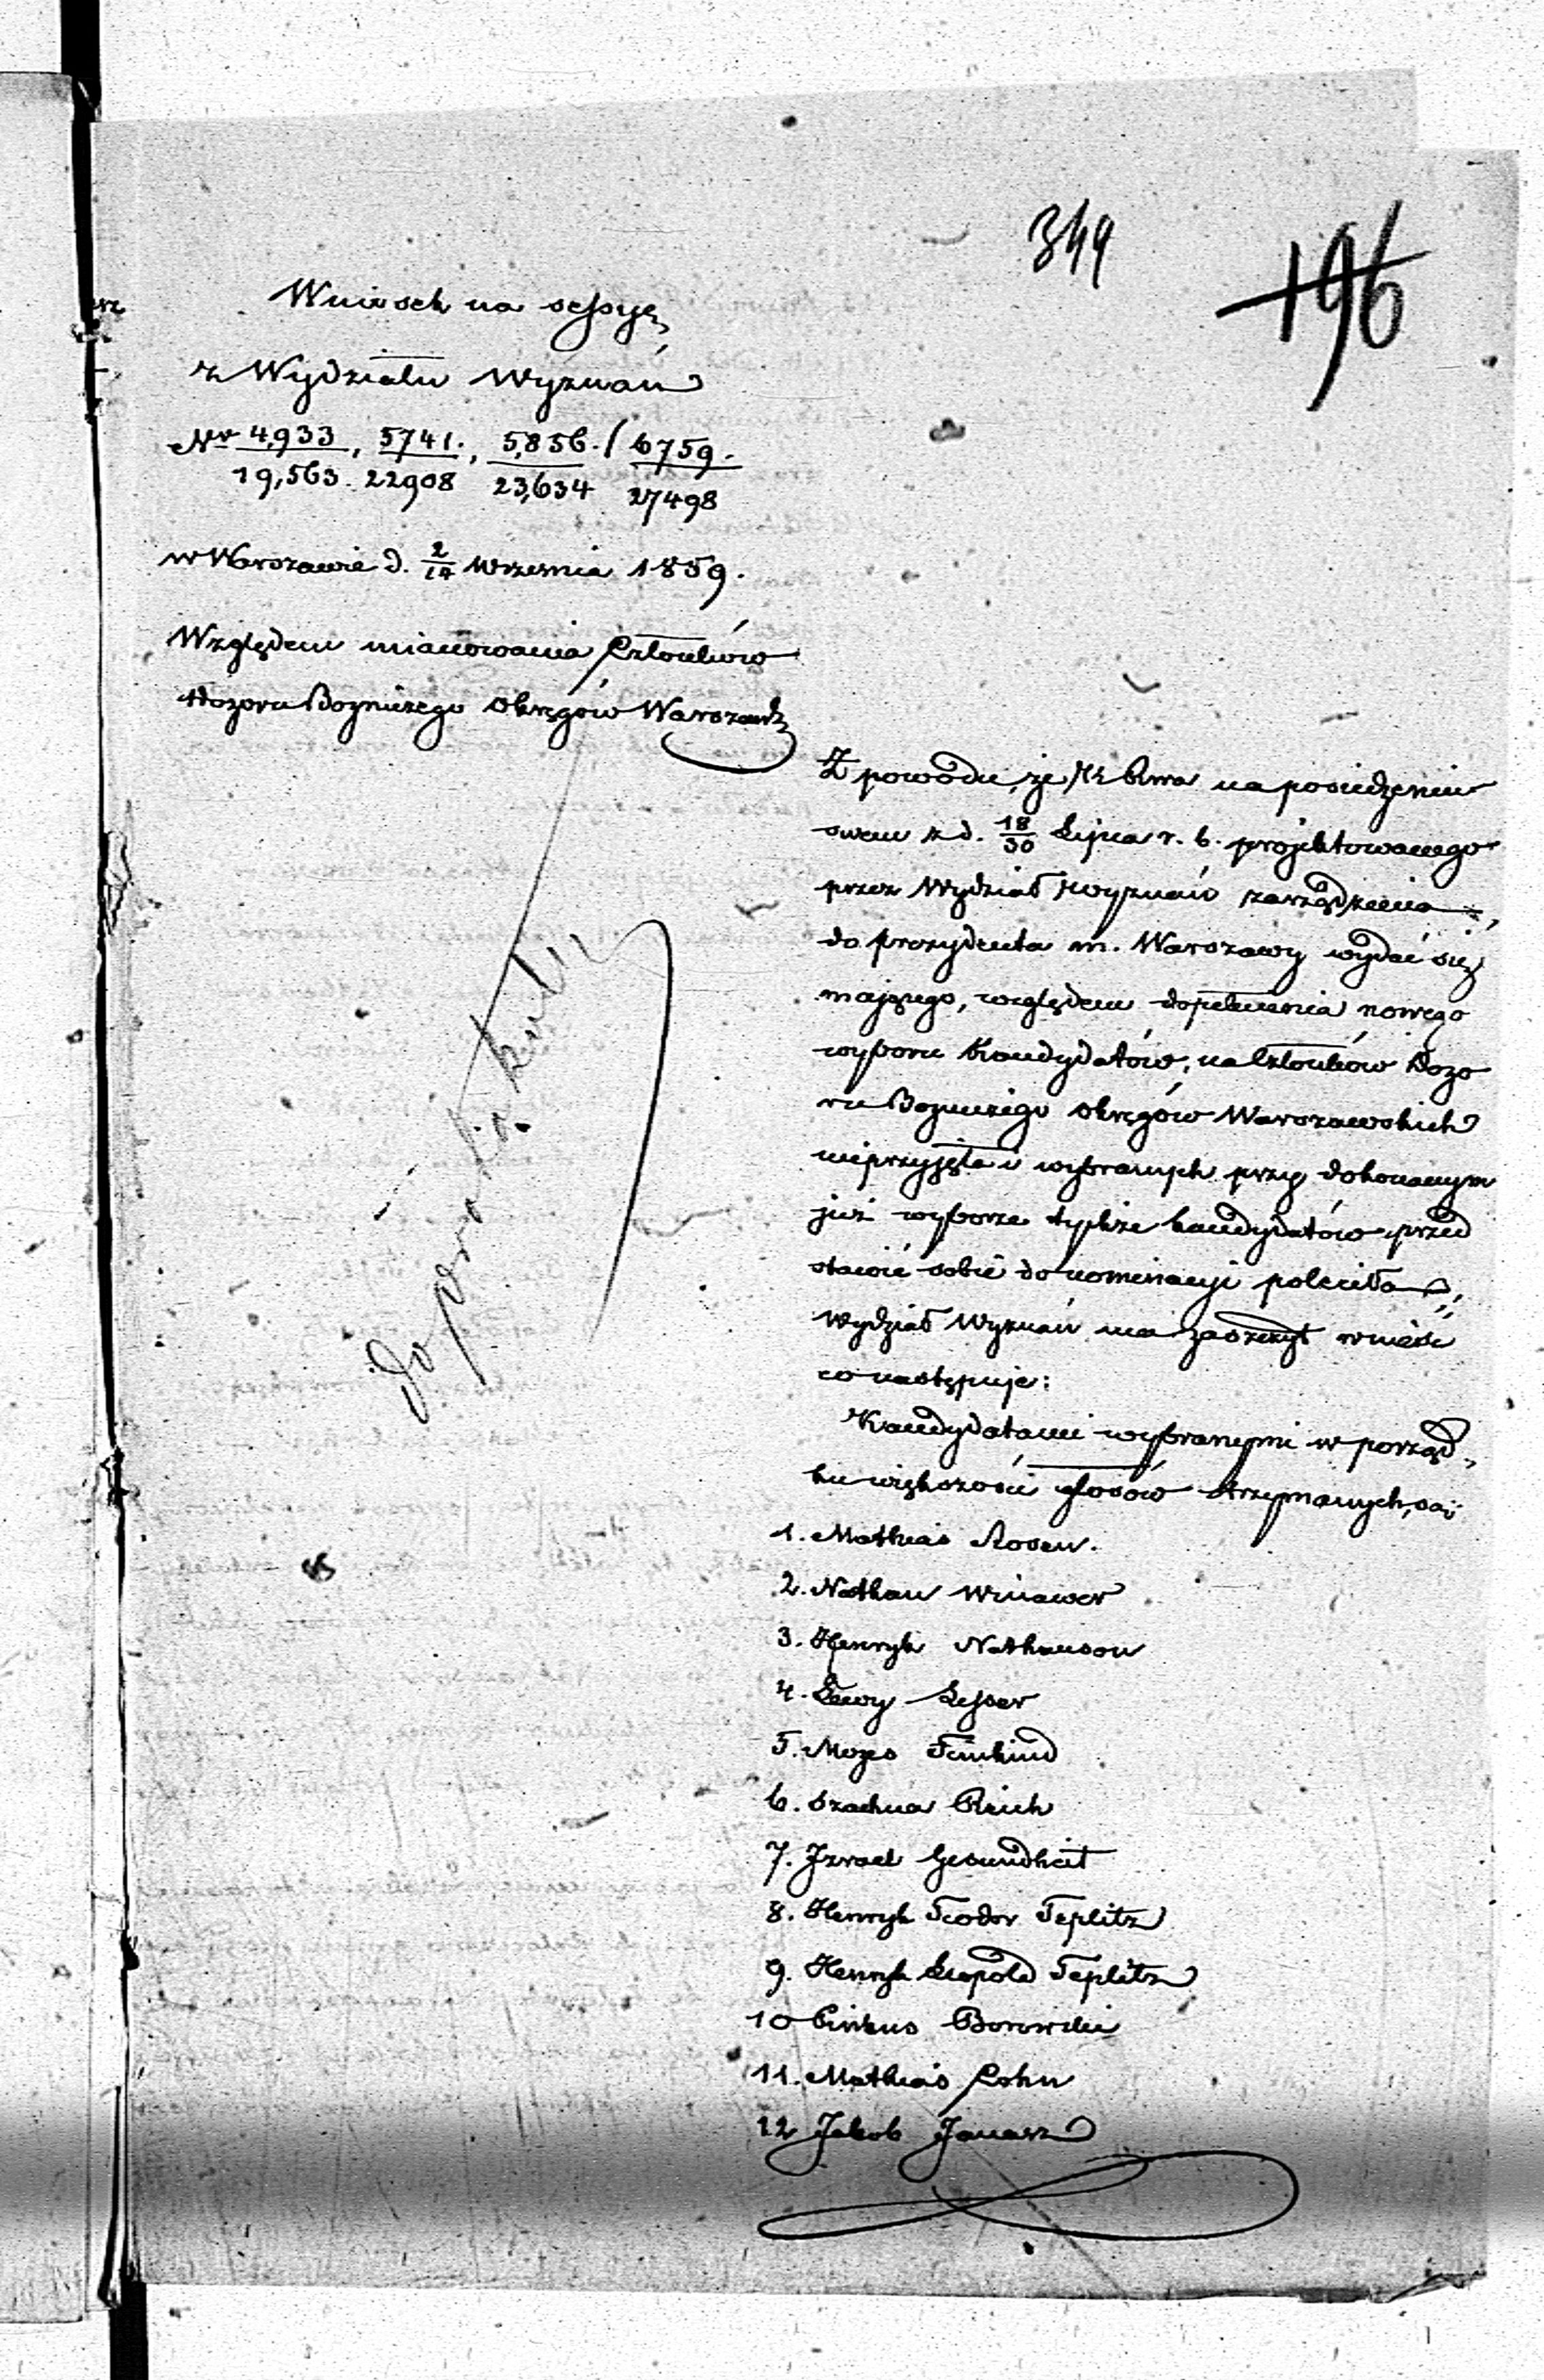 349
196
Wniosek na sessyę
z Wydziału Wyznań
Nr 4,933, 5741., 5,856. / 6759.
19,563. 22908 23,634 27498
w Warszawie d. 2/14 Września 1859.
Względem mianowania Członków
Dozoru Bożniczego Okręgów Warszawsk
Z powodu, że na posiedzeniu
swem z d. 18/30 Lipca r. b. projektowanego
przez Wydział Wyznań zarządzenia,
do prezydenta m. Warszawy wydać się
mającego, względem dopełnienia nowego
wyboru Kandydatów, na Członków Dozo
ru Bożniczego Okręgów Warszawskich
nieprzyjęła i wybranych przy dokonanym
już wyborze tychże kandydatów przed
stawić sobie do nominacyi poleciła,
Wydział Wyznań ma zaszczyt wnieść
co następuje:
Kandydatami wybranymi w porząd,
ku większości głosów otrzymanych, są:
1. Mathias Rosen.
2. Nathan Winawer
3. Henryk Nathanson
4. Lewy Lesser
5. Mozes Feinkind
6. Szachna Reich
7. Izrael Gesundheit
8. Henryk Teodor Teplitz
9. Henryk Leopold Teplitz
10 Pinkus Borowski
11. Mathias Cohn
12 Jakob Janasz
do protokułu